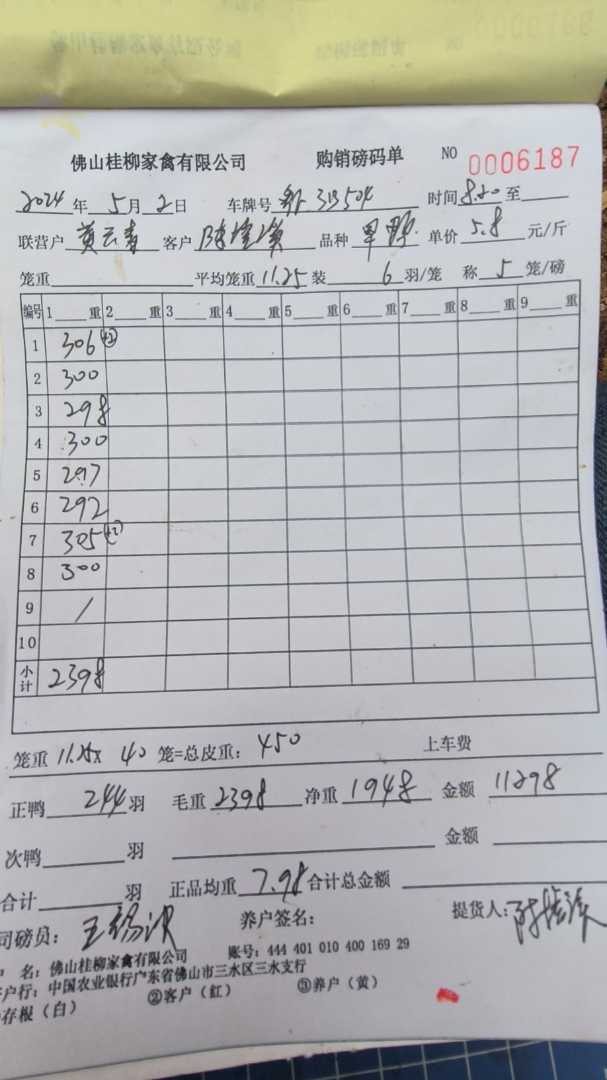 佛山桂柳家禽有限公司 购销磅码单 NO 0006187
2024年 5月 2日 车牌号 313504 时间 8.20 至
联营户 黄云青 客户 陈 品种 单价 5.8 元/斤
笼重 平均笼重 11.25 装 6 羽/笼 称 5 笼/磅
编号 1 重 2 重 3 重 4 重 5 重 6 重 7 重 8 重 9 重
1 306 +2
2 300
3 298
4 300
5 297
6 292
7 305 +2
8 300
9 /
10
小计 2398
笼重 11.25 x 40 笼=总皮重: 450 上车费
正鸭 244 羽 毛重 2398 净重 1948 金额 11298
次鸭 羽 金额
合计 羽 正品均重 7.98 合计总金额
司磅员: 王锡 养户签名: 提货人:
户 名: 佛山桂柳家禽有限公司 账号: 444 401 010 400 169 29
户行: 中国农业银行广东省佛山市三水区三水支行
存根(白) ②客户(红) ③养户(黄)